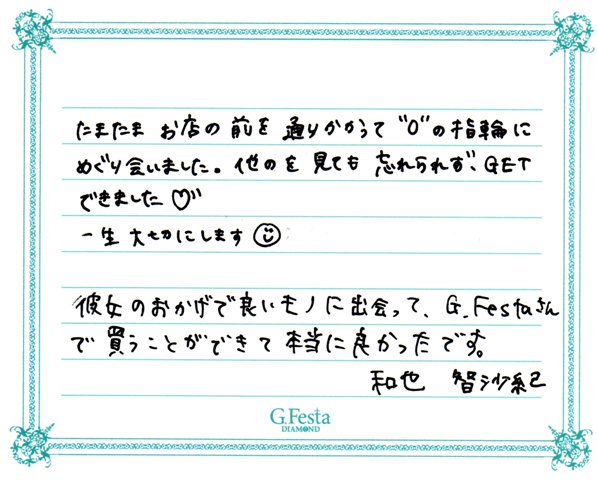 たまたま お店の 前を 通りかかって "O"の指輪に
めぐり会いました。他のを 見ても 忘れられず、GET
できました♡
一生 大切にします☺
彼女のおかげで良いモノに出会って、G.Festaさん
で 買うことができて 本当に良かったです。
和也 智沙紀
G.Festa
DIAMOND